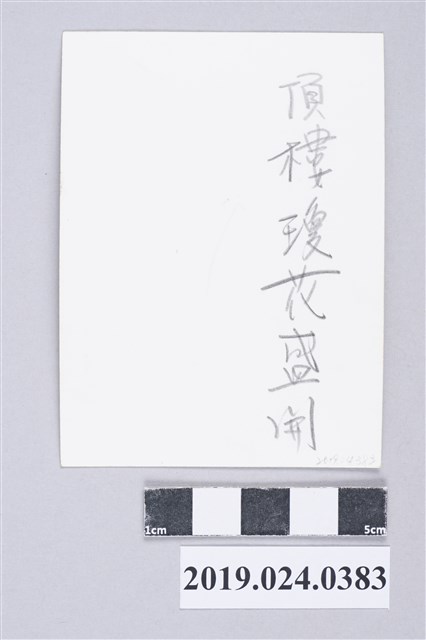 頂樓瓊花盛開
1cm
5cm
2019.024.0383